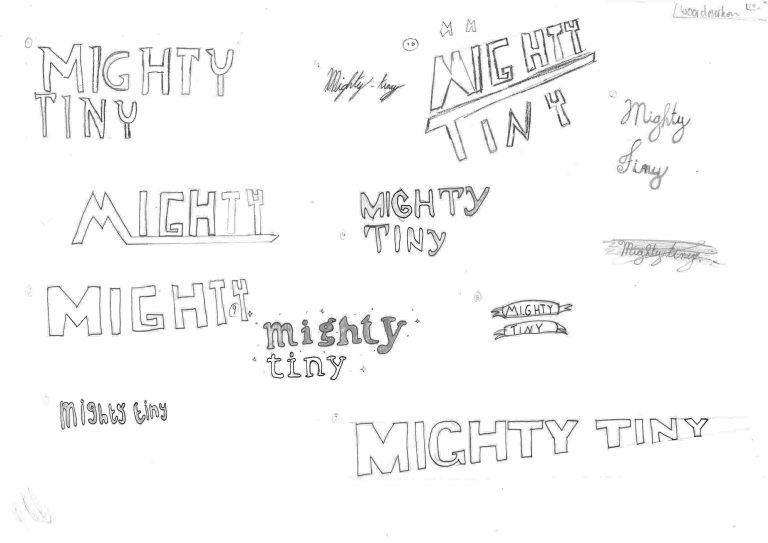 Woordmerken
MIGHTY
TINY
Mighty-tiny
10
M M
MIGHTY
TINY
Mighty
Tiny
MIGHTY
MIGHTY
TINY
Mighty tiny
MIGHTY
mighty
tiny
MIGHTY
TINY
mighty tiny
MIGHTY TINY